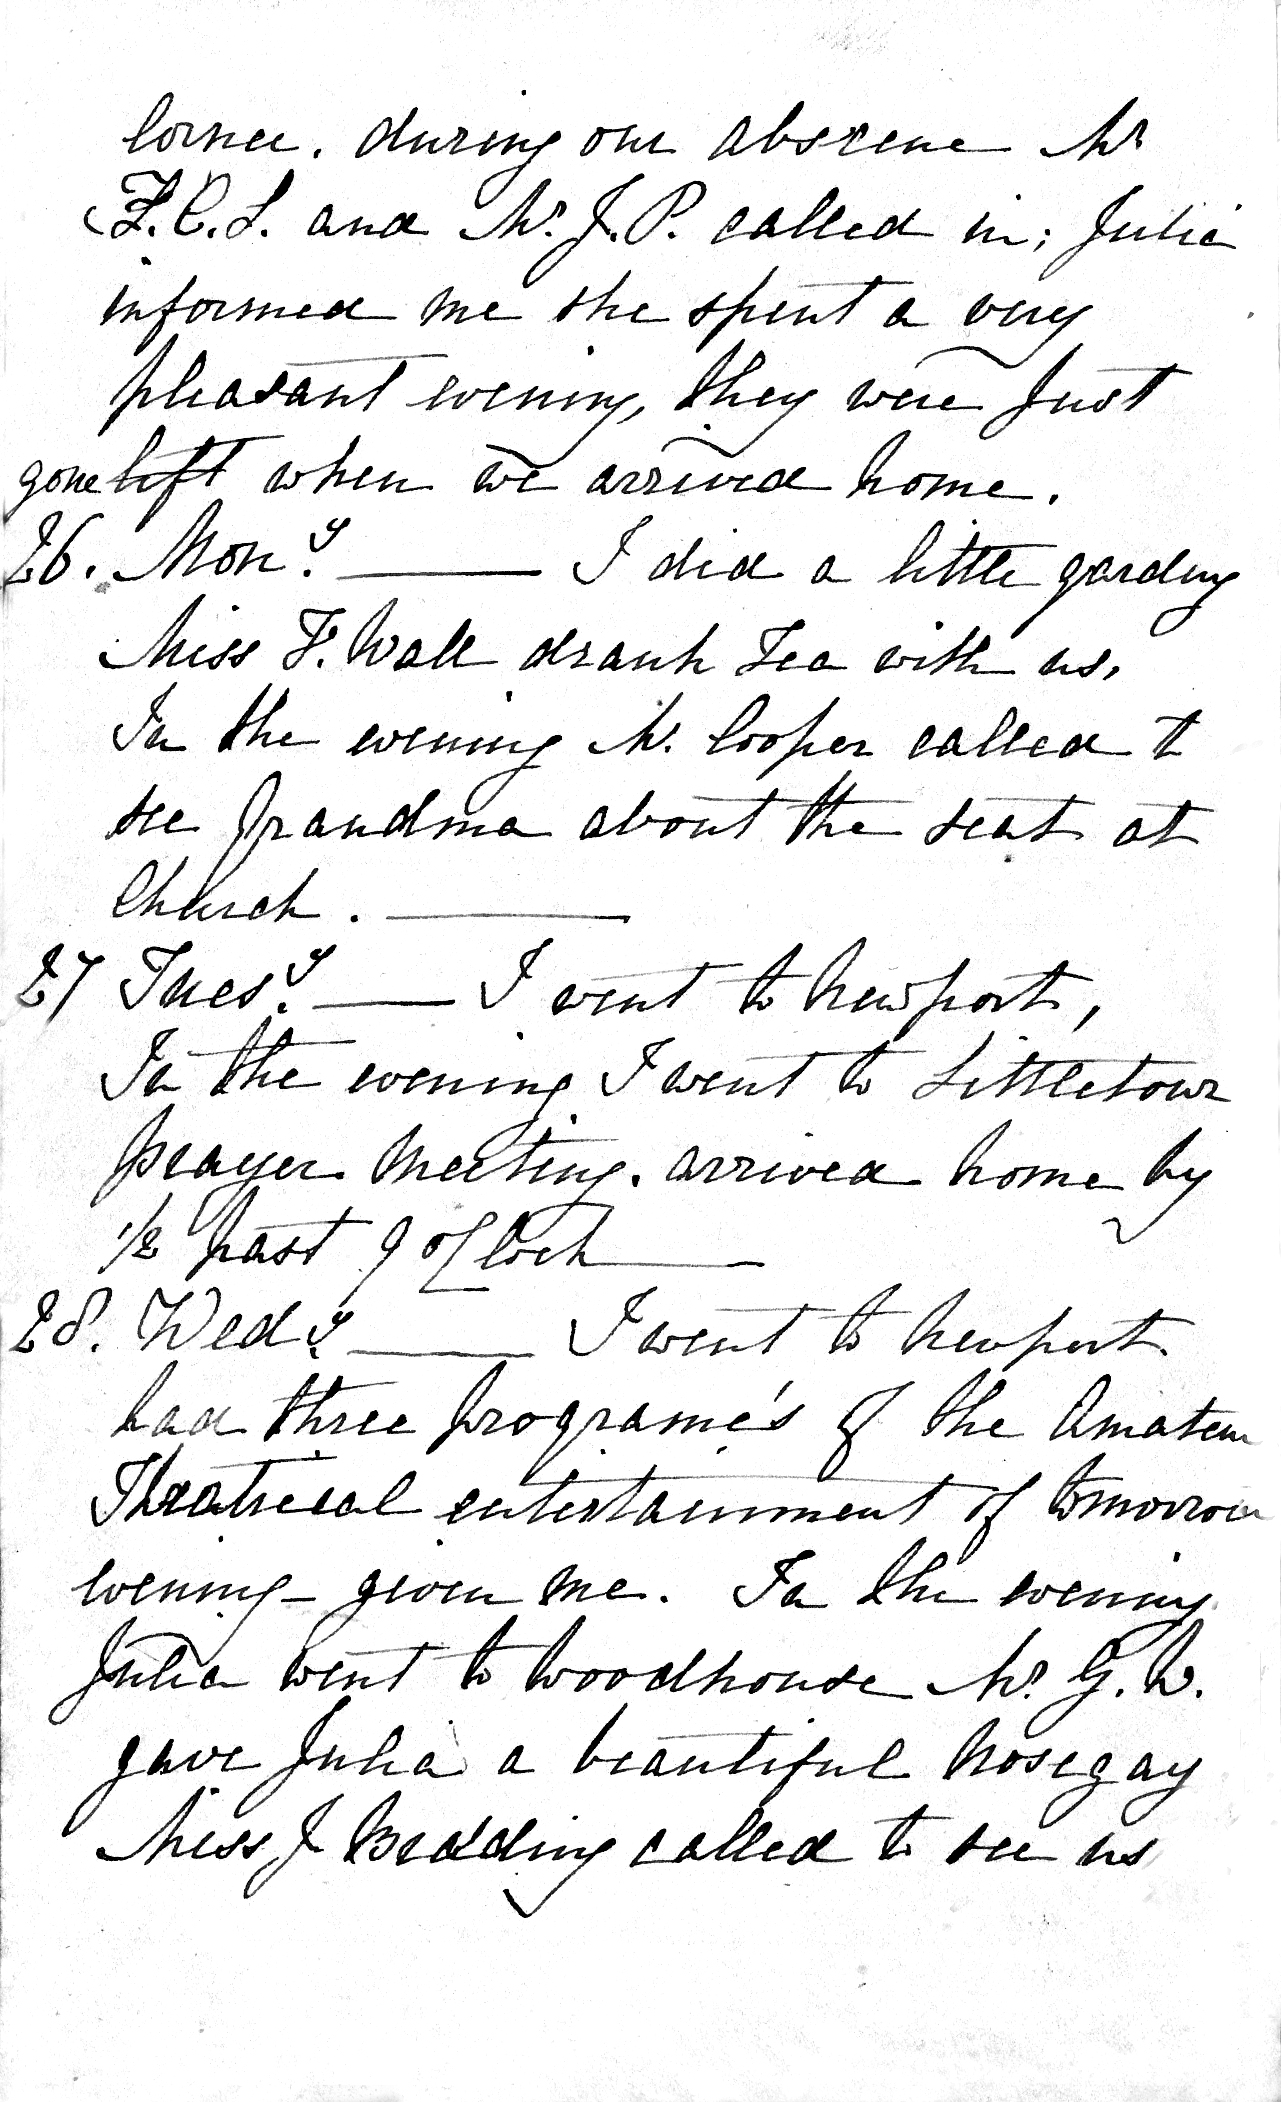 Corner. during our abscene Mr
F.C.S. and Mr. J.P. called in; Julia
informed me she spent a very
pleasant evening, they were Just
gone left when we arrived home.
26. Mon.y —— I did a little garding
Miss F. Wall drank Tea with us,
In the evening Mr. Cooper called to
see Grandma about the seat at
Church. ——
27 Tues.y —— I went to Newport,
In the evening I went to Littletown
Prayer Meeting. arrived home by
1/2 past 9 o'Clock ——
28. Wed.y —— I went to Newport.
had three programe's of the Amateur
Theatrical entertainment of tomorrow
evening – given me. In the evening
Julia went to Woodhouse Mr. G. W.
gave Julia a beautiful Nosegay
Miss J Bedding called to see us